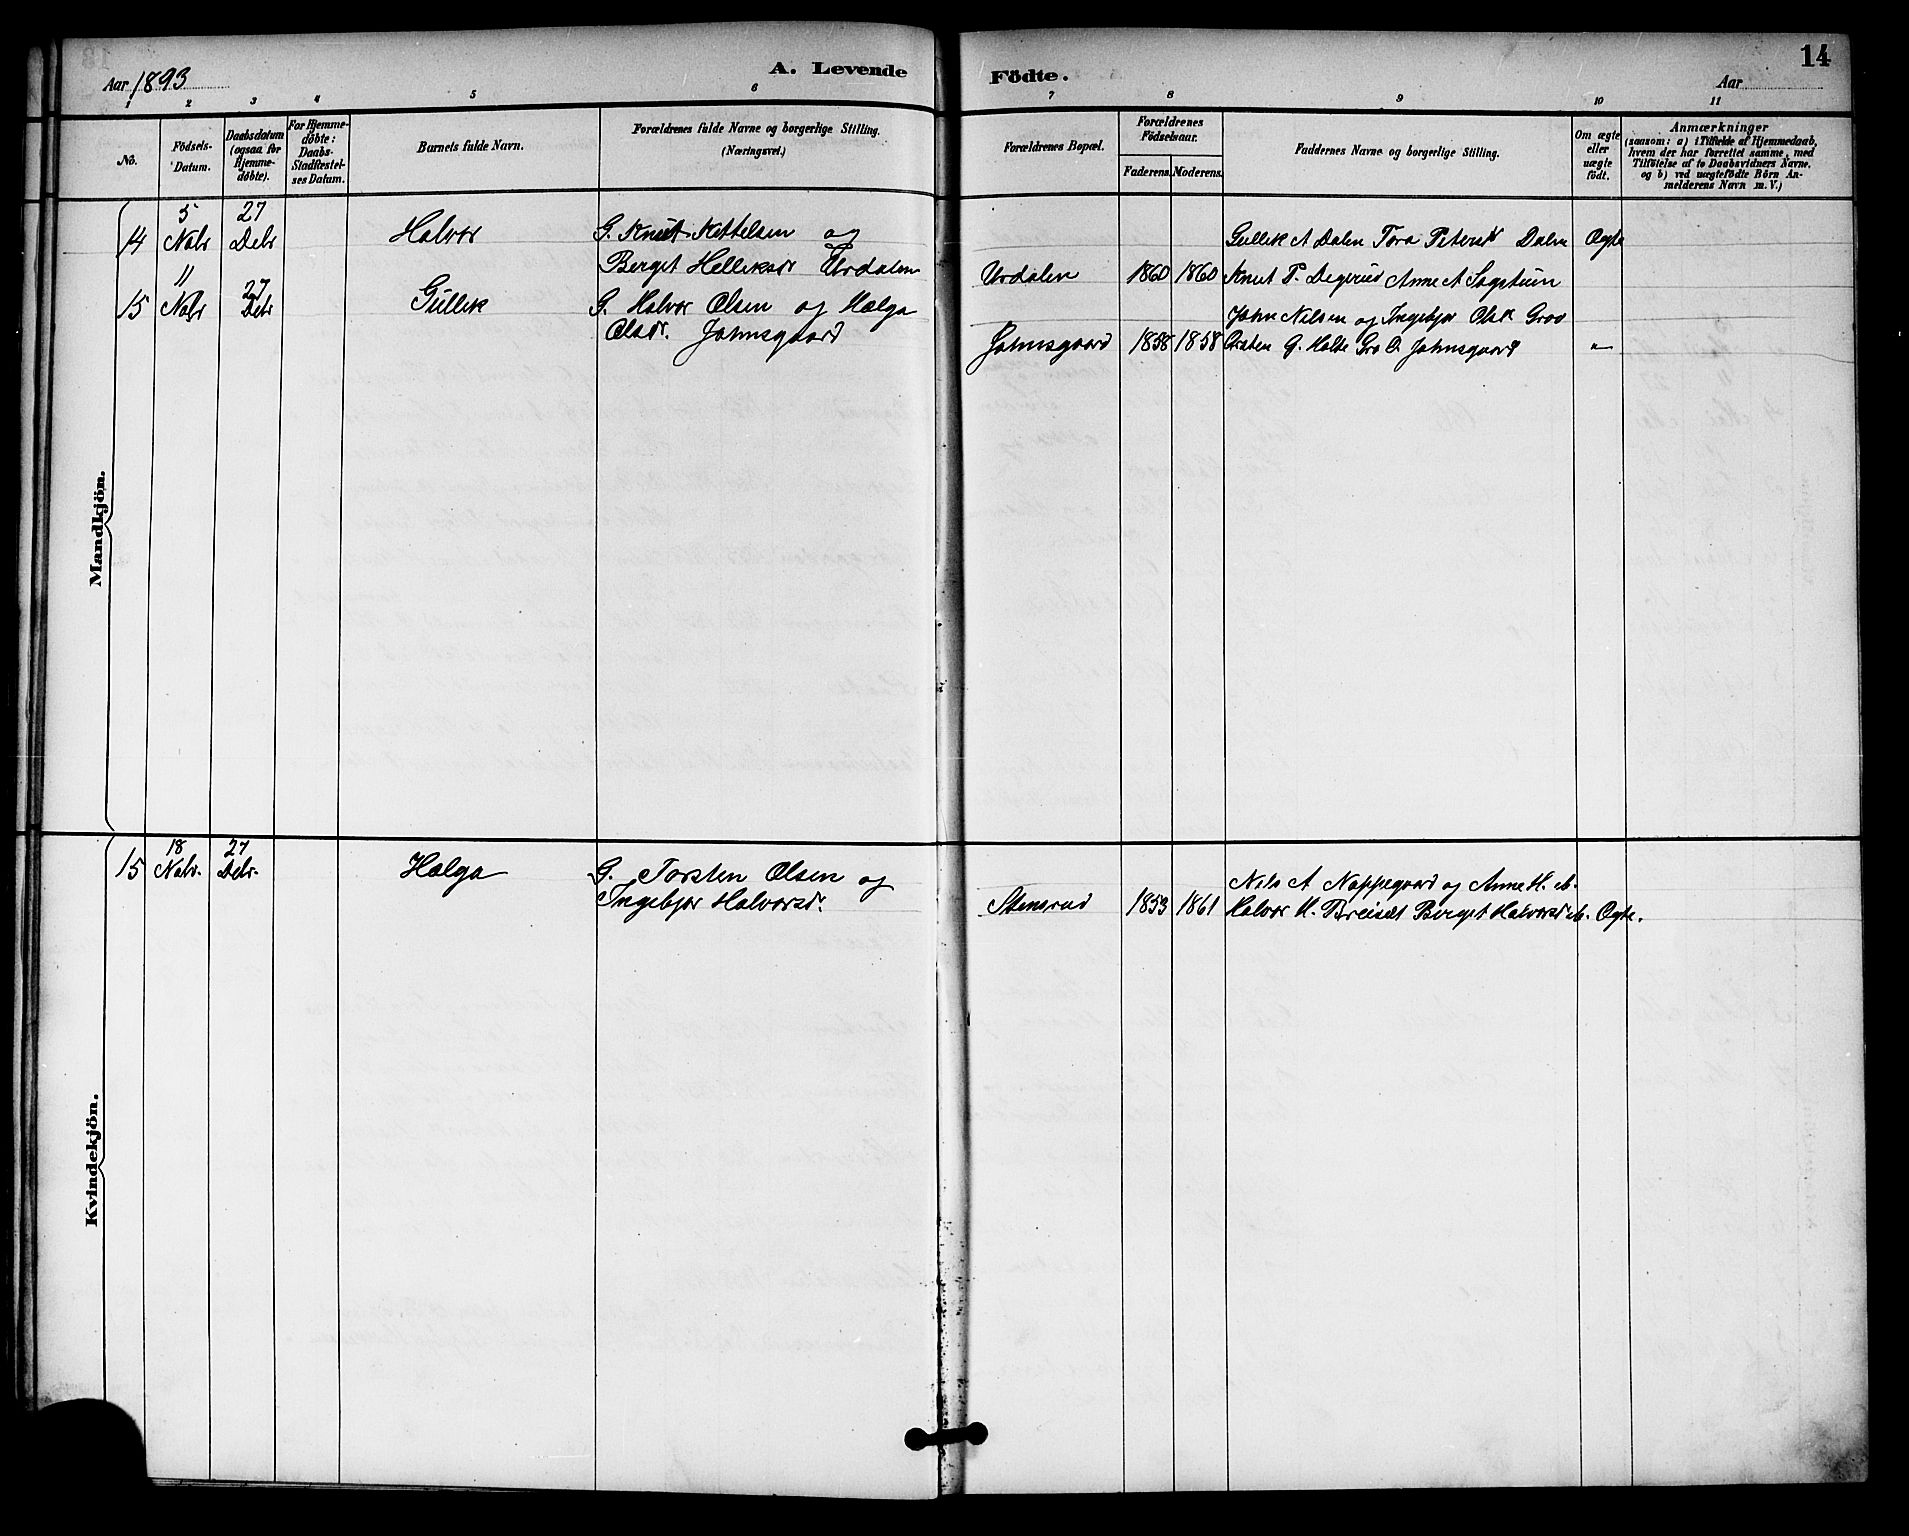 14
Aar 1893
A. Levende
Födte.
Aar
1 2 3 4 5 6
7 8 9 10 11
No.
Födsels-
Datum.
Daabsdatum
(ogsaa for
Hjemme-
döbte).
For Hjemme-
döbte:
Daabs-
Stadfæstel-
ses Datum.
Barnets fulde Navn.
Forældrenes fulde Navne og borgerlige Stilling.
(Næringsvei.)
Forældrenes Bopæl.
Forældrenes
Födselsaar.
Faderens.
Moderens.
Faddernes Navne og borgerlige Stilling.
Om ægte
eller
uægte
födt.
Anmærkninger
(saasom: a) i Tilfælde af Hjemmedaab,
hvem der har forrettet samme, med
Tilföielse af to Daabsvidners Navne,
og b) ved uægtefödte Börn An-
melderens Navn m. V.)
Mandkjön.
5 27
14 Nobr Debr Halvor G. Knut Kittelsen og
Berget Helliksdr Urdalen
Urdalen 1860 1860
Gullik A Dalen Tora Petersdr Dalen Ægte
Knut P. Degerud Anne A Sagstuen
11 27
15 Nobr Debr Gullik G. Halvor Olsen og Hælga
Olsdr. Johnsgaard
Johnsgaard 1858 1858
John Nilsen og Ingebjør Olsdr Groo
G. Holte Gro O. Johnsgaard "
Kvindekjön.
18 27
15 Nobr. Debr. Hælga G. Torsten Olsen og
Ingebjør Halvorsdr.
Stensrud 1853 1861
Nils A Noppegaard og Anne H. ib.
Halvor H. Breiset Berget Halvorsd ib. Ægte.